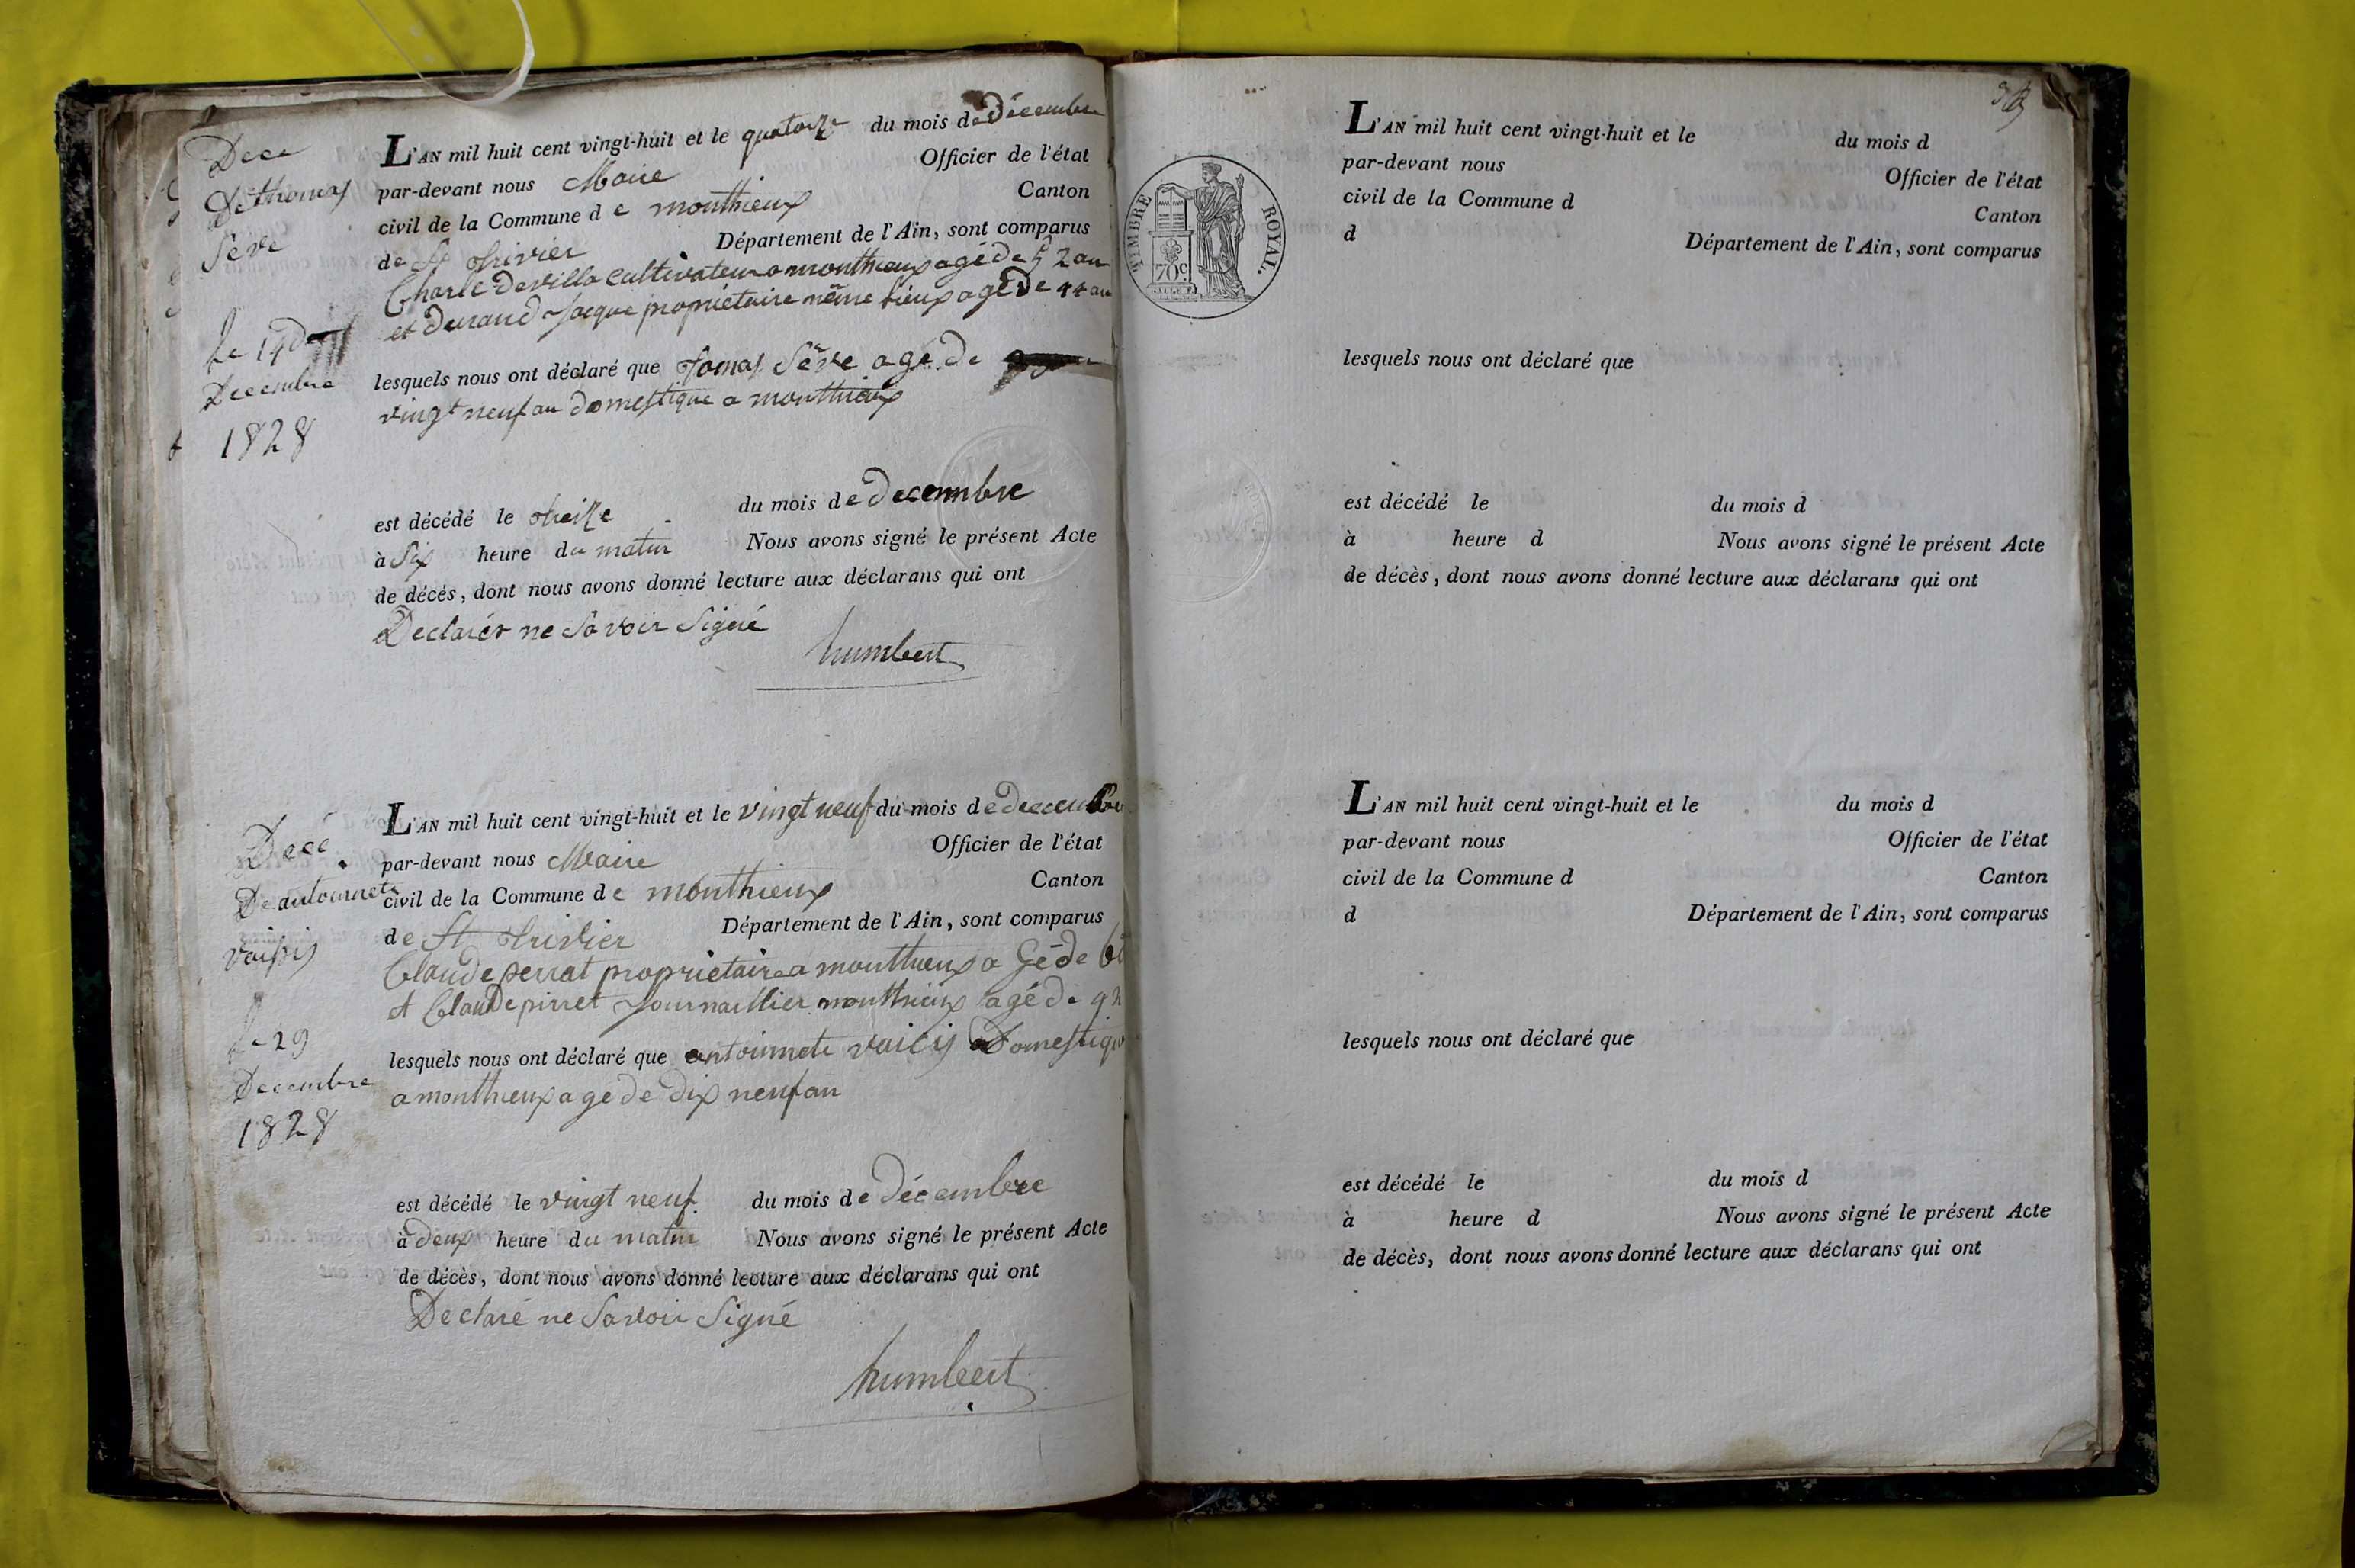 Dece
De thomas
Sève
Le 14
Decembre
1828
L'AN mil huit cent vingt-huit et le quatorze du mois de Décembre
par-devant nous Maire Officier de l'état
civil de la Commune de monthieux Canton
de St trivier Département de l'Ain, sont comparus
Charle Devilla Cultivateur a monthieux agé de 52 an
et durand Jacque propriétaire même lieux agé De 44 an
lesquels nous ont déclaré que tomas Sève agé De
vingt neuf an domestique a monthieux
est décédé le treize du mois de decembre
à Six heure du matin Nous avons signé le présent Acte
de décès, dont nous avons donné lecture aux déclarans qui ont
Declarér ne Savoir Signé
humbert
Decé
De antoinnete
voisis
le 29
Decembre
1828
L'AN mil huit cent vingt-huit et le vingt neuf du mois de decembre
par-devant nous Maire Officier de l'état
civil de la Commune de monthieux Canton
de St trivier Département de l'Ain, sont comparus
Claude perrat propriétaire a monthieux a Gé de
et Claude pirret Journaillier monthieux agé de
lesquels nous ont déclaré que antoinnete voicis Domestique
a monthieux age de Dix neuf an
est décédé le vingt neuf du mois de Décembre
à deux heure du matin Nous avons signé le présent Acte
de décès, dont nous avons donné lecture aux déclarans qui ont
Declaré ne Savoir Signé
humbert
TIMBRE ROYAL.
70c.
L'AN mil huit cent vingt-huit et le du mois d
par-devant nous Officier de l'état
civil de la Commune d Canton
d Département de l'Ain, sont comparus
lesquels nous ont déclaré que
est décédé le du mois d
à heure d Nous avons signé le présent Acte
de décès, dont nous avons donné lecture aux déclarans qui ont
L'AN mil huit cent vingt-huit et le du mois d
par-devant nous Officier de l'état
civil de la Commune d Canton
d Département de l'Ain, sont comparus
lesquels nous ont déclaré que
est décédé le du mois d
à heure d Nous avons signé le présent Acte
de décès, dont nous avons donné lecture aux déclarans qui ont